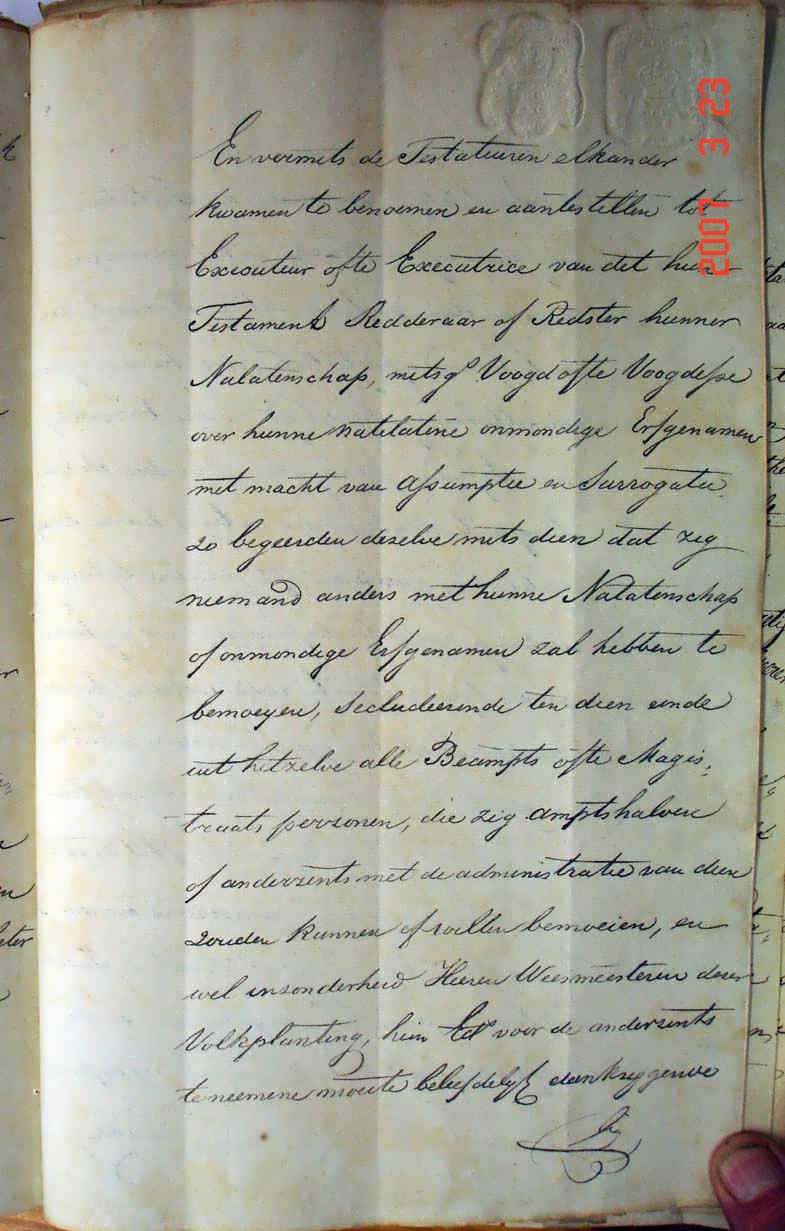 2007 3 23
En vermits de Testateuren elkander
kwamen te benoemen en aantestellen tot
Executeur ofte Executrice van dit hun
Testament Redderaar of Redster hunner
Nalatenschap, mitsgs Voogd ofte Voogdesse
over hunne natelatene onmondige Erfgenamen
met macht van assumptie en Surrogatie
zo begeerden dezelve mits dien dat zig
niemand anders met hunne Nalatenschap
of onmondige Erfgenamen zal hebben te
bemoeyen, Secludeerende ten dien einde
uit hetzelve alle Beampts ofte Magis:
traats personen, die zig amptshalven
of anderzents met de administratie van dien
zouden kunnen of willen bemoeien, en
wel insonderheid Heeren Weesmeesteren dezer
Volkplanting, hun Eds voor de anderzents
te neemene moeite beleefdelyk dankzeggende